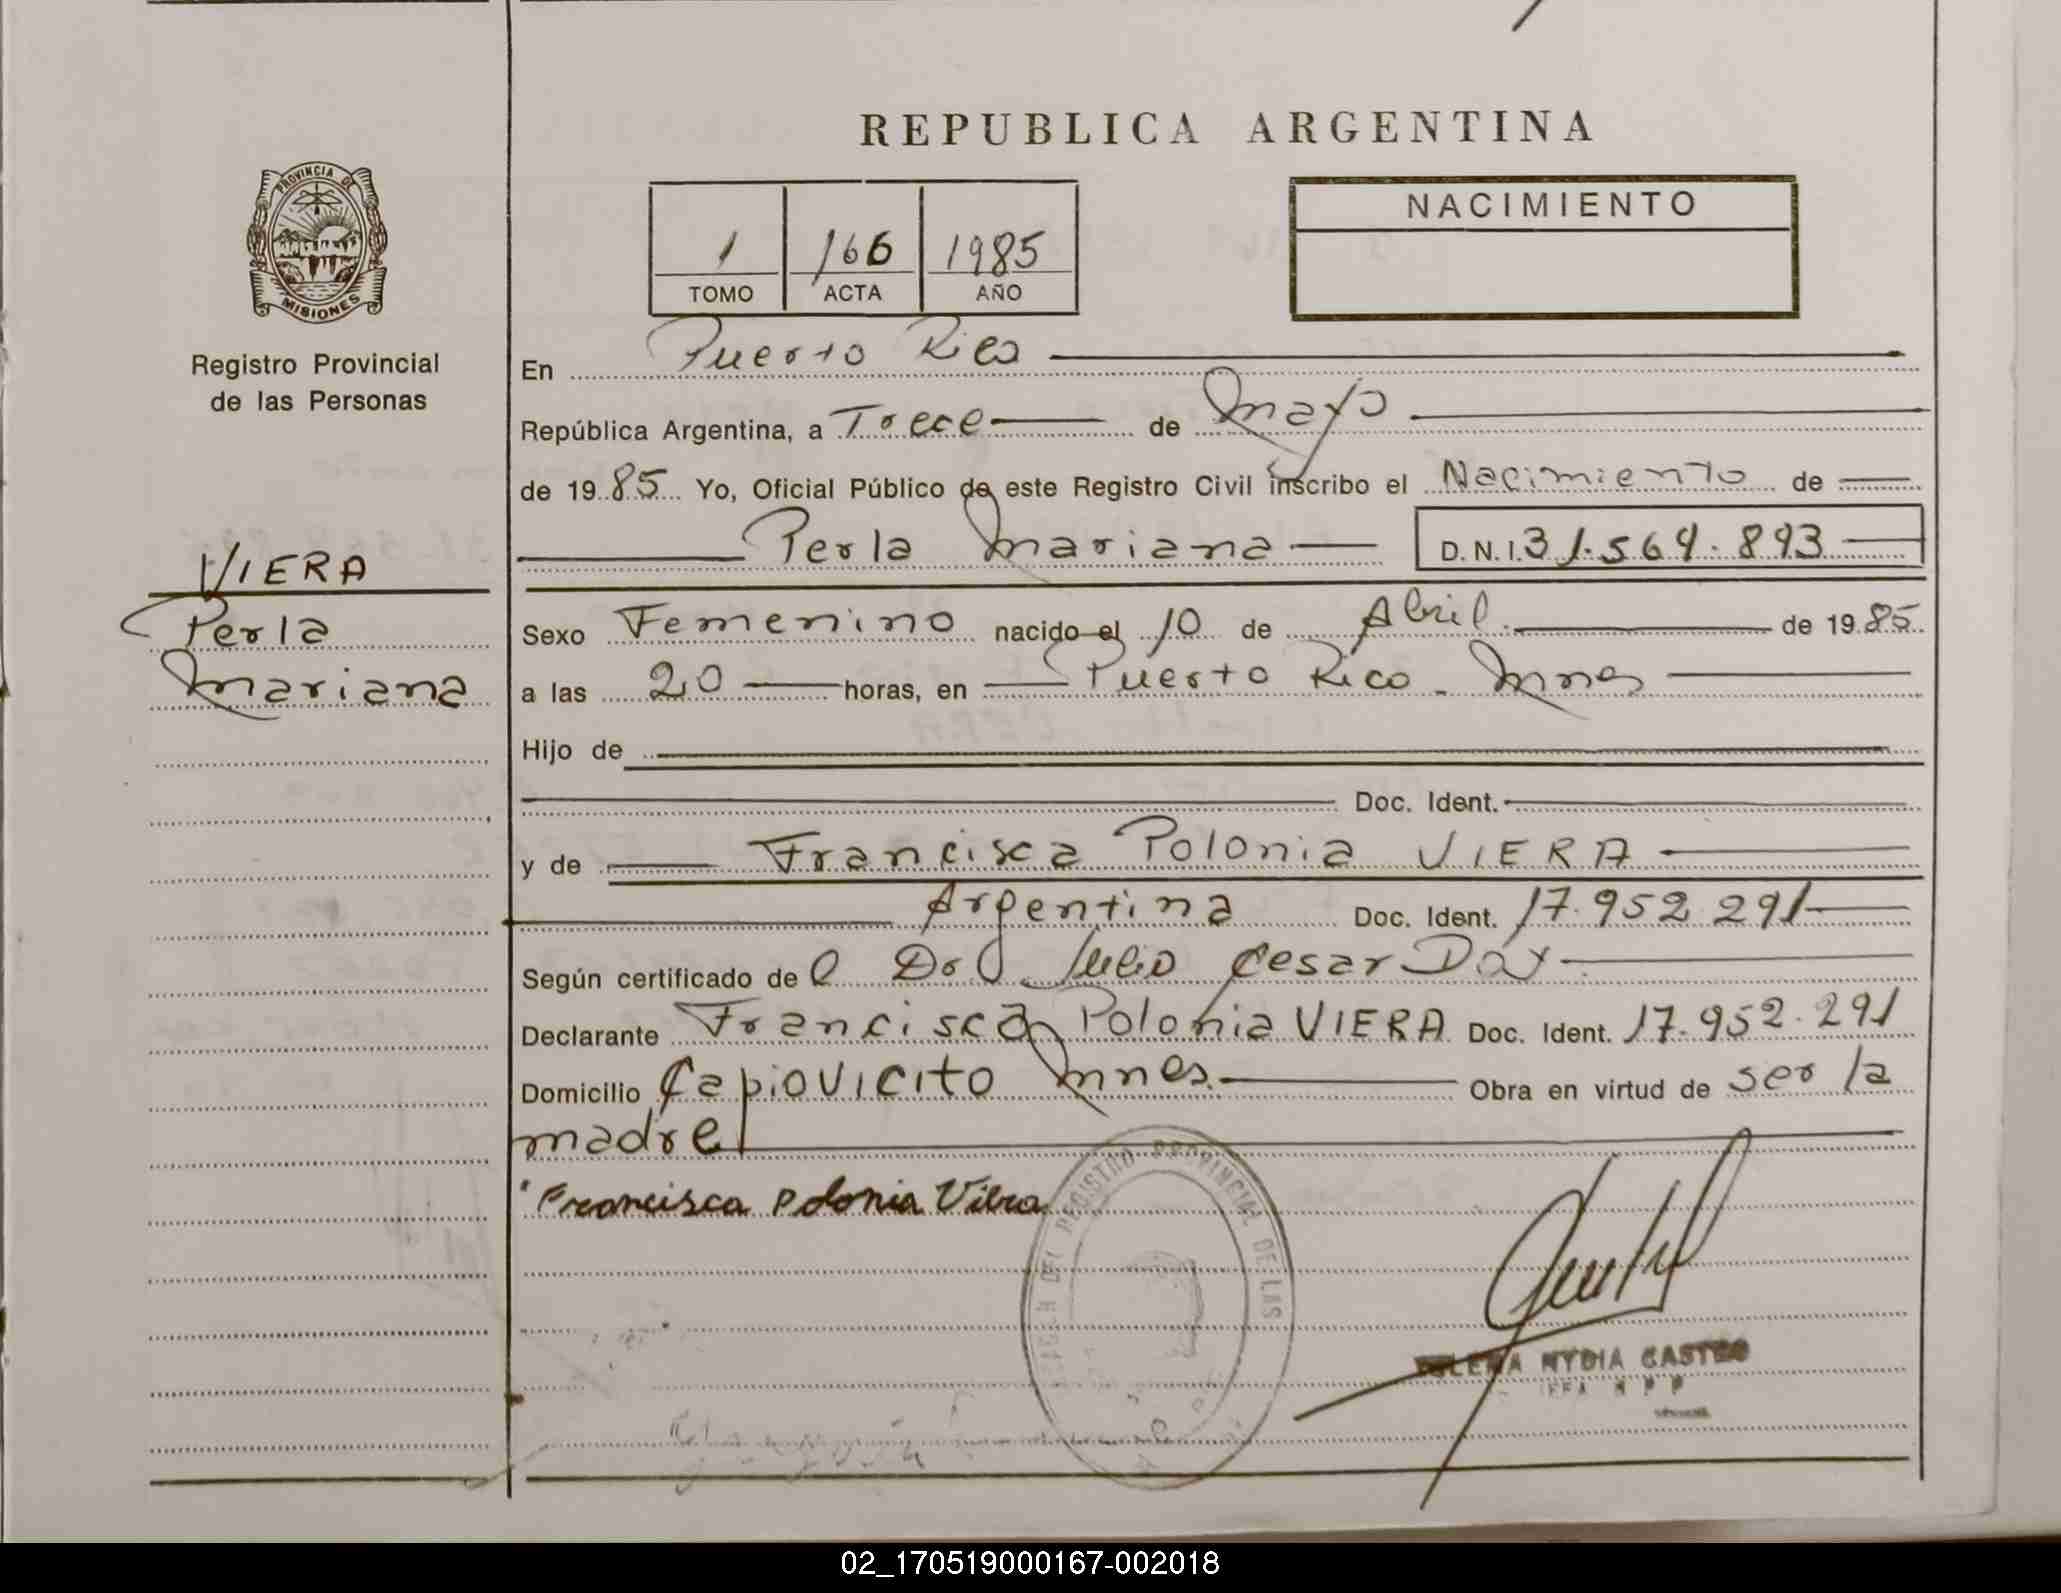 REPUBLICA ARGENTINA
PROVINCIA DE
MISIONES
Registro Provincial
de las Personas
1 166 1985
TOMO ACTA AÑO
NACIMIENTO
En Puerto Rico
República Argentina, a Trece de Mayo
de 1985 Yo, Oficial Público de este Registro Civil inscribo el Nacimiento de
Perla Mariana D. N. I. 31.564.893
VIERA
Perla
Mariana
Sexo Femenino nacido el 10 de Abril de 1985
a las 20 horas, en Puerto Rico - Mnes
Hijo de
Doc. Ident.
y de Francisca Polonia VIERA
Argentina Doc. Ident. 17.952.291
Según certificado del Dr Julio Cesar Doy
Declarante Francisca Polonia VIERA Doc. Ident. 17.952.291
Domicilio Capiovicito Mnes. Obra en virtud de ser la
madre
Francisca Polonia Viera
REGISTRO PROVINCIAL DE LAS
NYDIA CASTRO
02_170519000167-002018